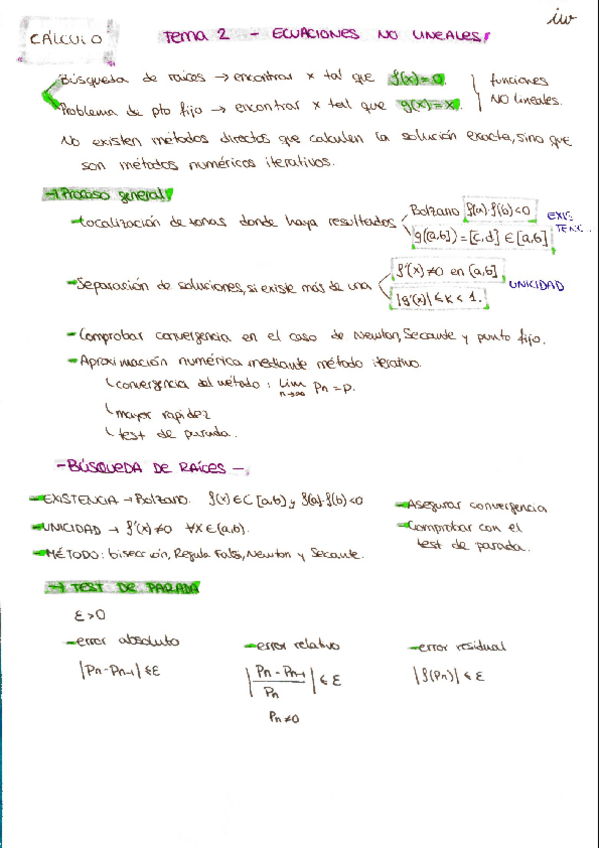 iw
CÁLCULO
TEMA 2 - ECUACIONES NO LINEALES
Búsqueda de raíces → encontrar x tal que f(x)=0.
Problema de pto fijo → encontrar x tal que g(x)=x.
funciones
NO lineales.
No existen métodos directos que calculen la solución exacta, sino que
son métodos numéricos iterativos.
→ Proceso general
- Localización de zonas donde haya resultados
Bolzano f(a)·f(b)<0
g([a,b]) = [c,d] ∈ [a,b]
EXIS
TENC..
- Separación de soluciones, si existe más de una
f'(x) ≠ 0 en [a,b]
|g'(x)| ≤ K < 1.
UNICIDAD
- Comprobar convergencia en el caso de Newton, Secante y punto fijo.
- Aproximación numérica mediante método iterativo.
convergencia del método: lim n→∞ Pn = P.
mayor rapidez
test de parada.
- BÚSQUEDA DE RAÍCES -
- EXISTENCIA → Bolzano. f(x) ∈ C [a,b] y f(a)·f(b)<0
- UNICIDAD → f'(x) ≠ 0 ∀x ∈ (a,b).
- MÉTODO: bisección, Regula Falsi, Newton y Secante.
- Asegurar convergencia
- Comprobar con el
test de parada.
→ TEST DE PARADA
ε > 0
- error absoluto
|Pn - Pn-1| ≤ ε
- error relativo
|(Pn - Pn-1)/Pn| ≤ ε
Pn ≠ 0
- error residual
|f(Pn)| ≤ ε